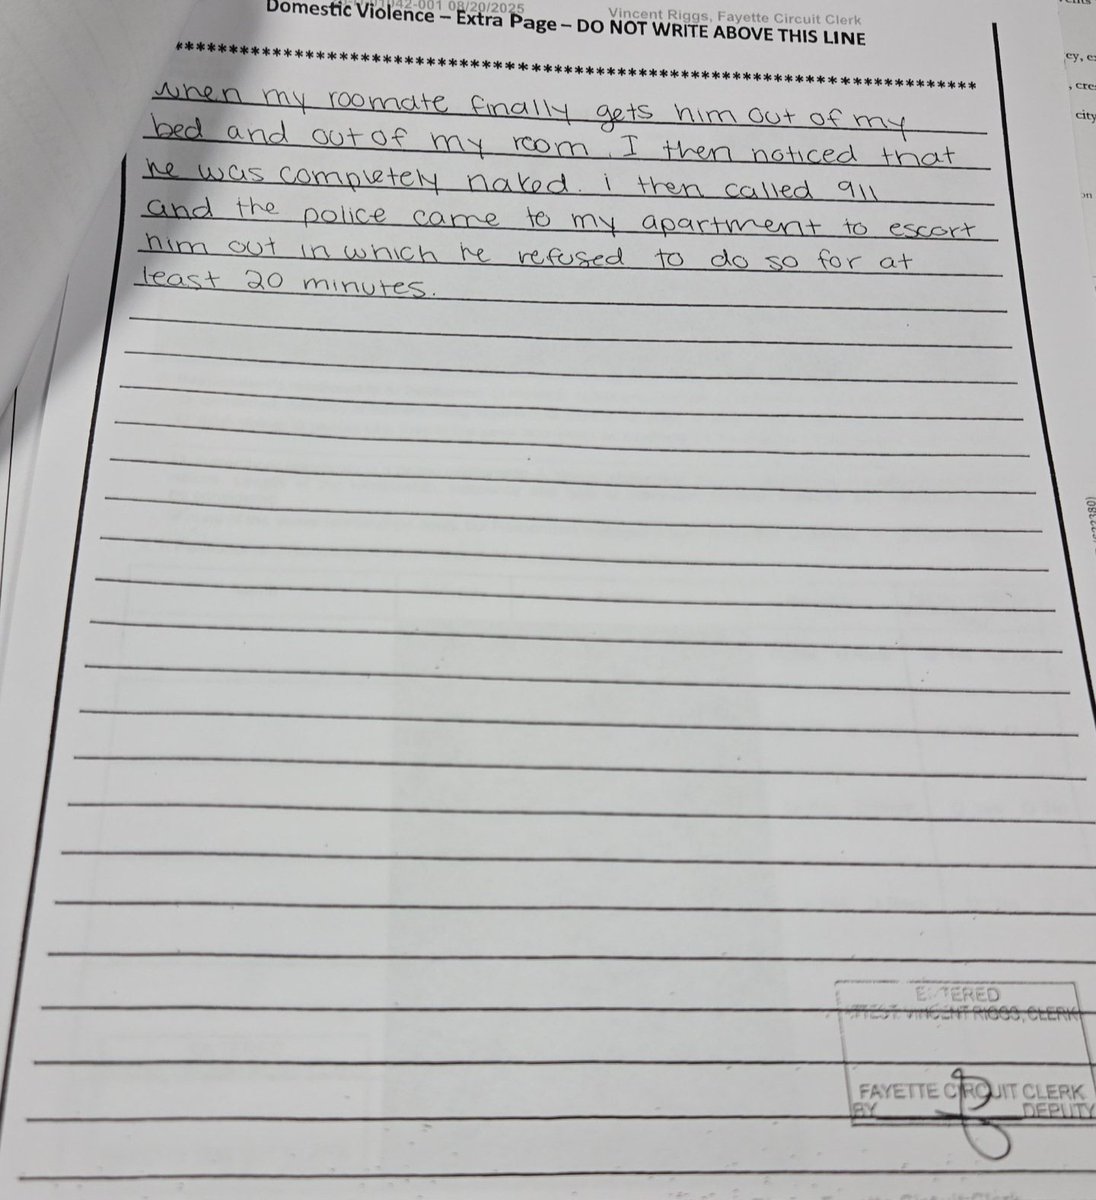 042-001 08/20/2025
Vincent Riggs, Fayette Circuit Clerk
Domestic Violence – Extra Page – DO NOT WRITE ABOVE THIS LINE
************************************************************************************
when my roomate finally gets him out of my
bed and out of my room, I then noticed that
he was completely naked. i then called 911
and the police came to my apartment to escort
him out in which he refused to do so for at
least 20 minutes.
city
ENTERED
ATTEST, VINCENT RIGGS, CLERK
FAYETTE CIRCUIT CLERK
BY DEPUTY